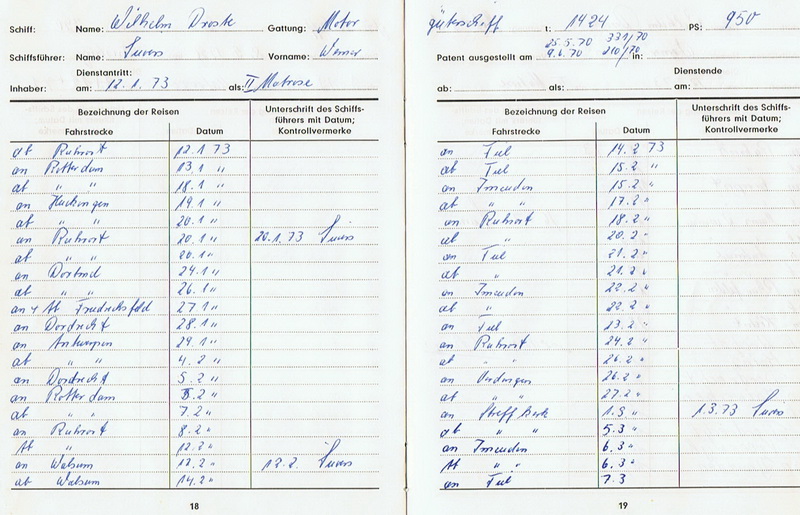 Schiff: Name: Wilhelm Droste Gattung: Motor
Schiffsführer: Name: Suers Vorname: Werner
Dienstantritt:
Inhaber: am: 12.1.73 als: II Matrose
Bezeichnung der Reisen
Unterschrift des Schiffsführers mit Datum; Kontrollvermerke
Fahrstrecke Datum
ab Ruhrort 12.1 73
an Rotterdam 13.1 "
ab " " 18.1 "
an Huckingen 19.1 "
ab " " 20.1 "
an Ruhrort 20.1 " 20.1.73 Suers
ab " " 20.1 "
an Dortmd 24.1 "
ab " " 26.1 "
an + Ab Friedrichsfeld 27.1 "
an Dordrecht 28.1 "
an Antwerpen 29.1 "
ab " " 4.2 "
an Dordrecht 5.2 "
an Rotterdam 5.2 "
ab " " 7.2 "
an Ruhrort 8.2 "
Ab " 12.2 "
an Walsum 12.2 " 12.2. Suers
ab Walsum 14.2 "
18
güterschiff t: 1424 PS: 950
25.5.70 331/70
Patent ausgestellt am 9.6.70 210/70 in:
Dienstende
ab: als: am:
Bezeichnung der Reisen
Unterschrift des Schiffsführers mit Datum; Kontrollvermerke
Fahrstrecke Datum
an Tiel 14.2 73
ab Tiel 15.2 "
an Imeuden 15.2 "
ab " " 17.2 "
an Ruhrort 18.2 "
ab " 20.2 "
an Tiel 21.2 "
ab " 21.2 "
an Imeuden 22.2 "
ab " 22.2 "
an Tiel 23.2 "
an Ruhrort 24.2 "
ab " " 26.2 "
an Urdingen 26.2 "
ab " " 27.2 "
an 1.3 " 1.3.73 Suers
ab " " 5.3 "
an Imeuden 6.3 "
Ab " " 6.3 "
an Tiel 7.3
19